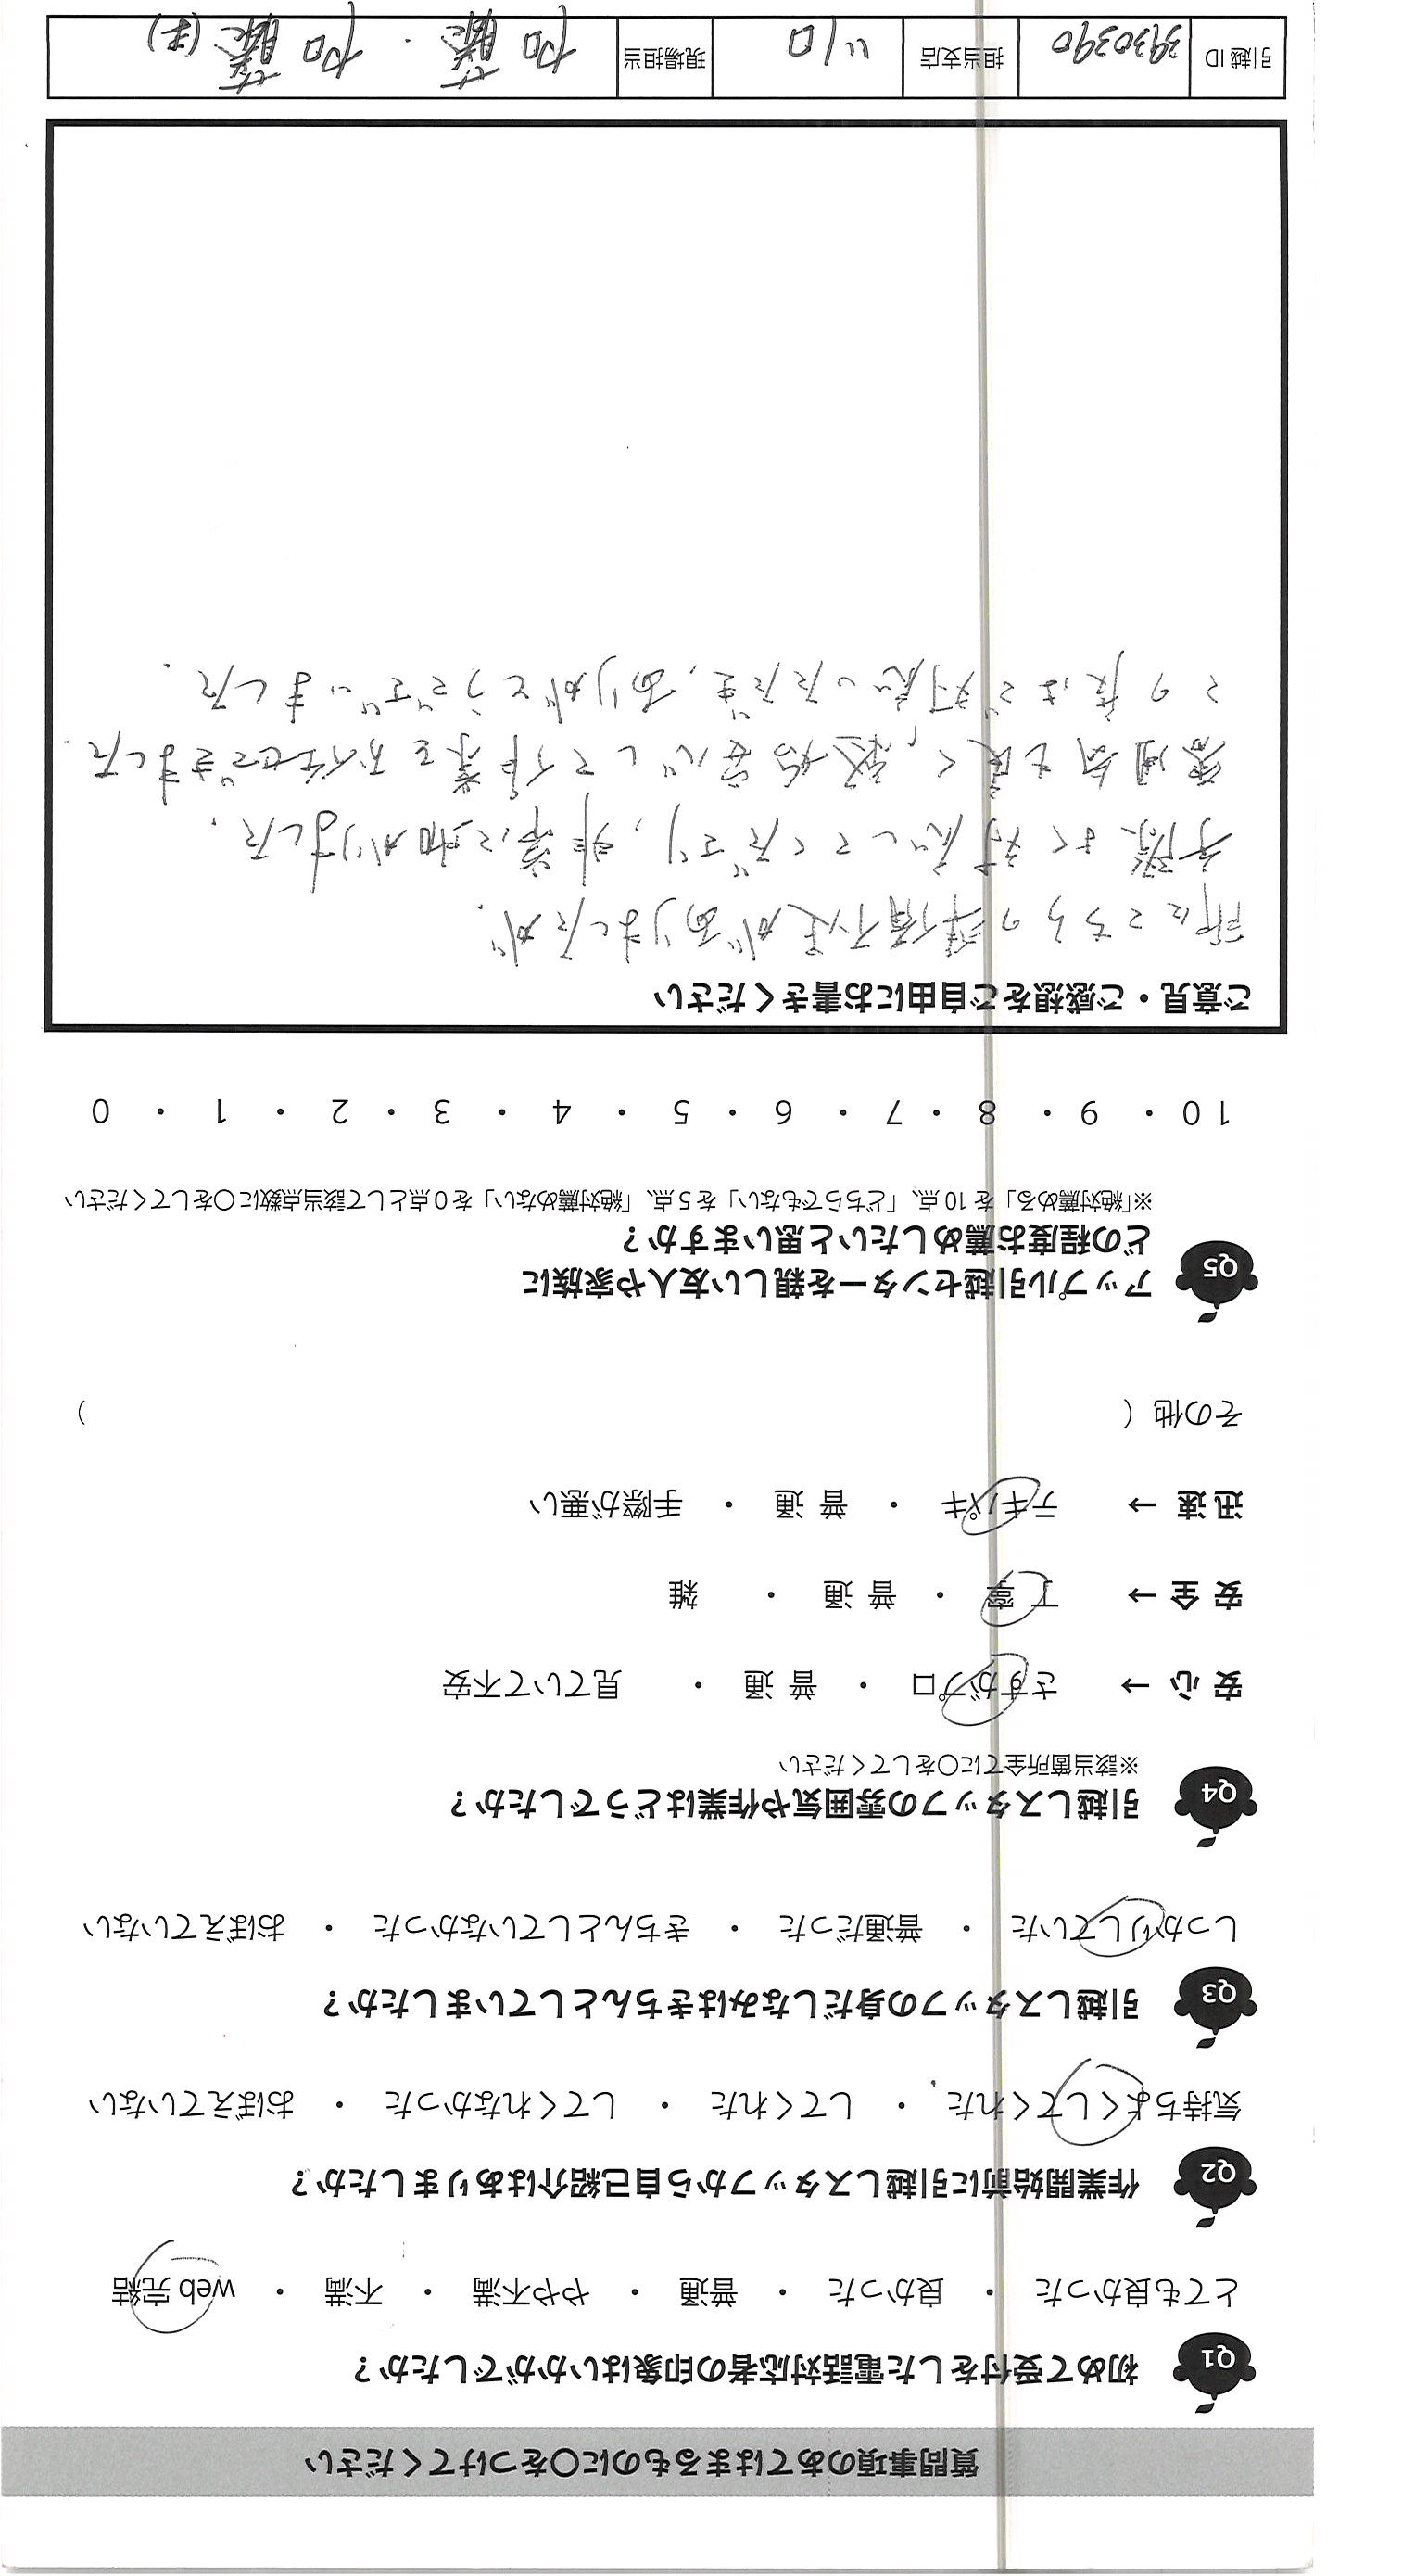 質問事項のあてはまるものに〇をつけてください
Q1 初めて受付をした電話対応者の印象はいかがでしたか？
とても良かった ・ 良かった ・ 普通 ・ やや不満 ・ 不満 ・ web 完結
Q2 作業開始前に引越しスタッフから自己紹介はありましたか？
気持ちよくしてくれた ・ してくれた ・ してくれなかった ・ おぼえていない
Q3 引越しスタッフの身だしなみはきちんとしていましたか？
しっかりしていた ・ 普通だった ・ きちんとしていなかった ・ おぼえていない
Q4 引越しスタッフの雰囲気や作業はどうでしたか？
※該当箇所全てに〇をしてください
安心 → さすがプロ ・ 普通 ・ 見ていて不安
安全 → 丁寧 ・ 普通 ・ 雑
迅速 → テキパキ ・ 普通 ・ 手際が悪い
その他（ ）
Q5 アップル引越センターを親しい友人や家族に
どの程度お薦めしたいと思いますか？
※「絶対薦める」を 10 点、「どちらでもない」を 5 点、「絶対薦めない」を 0 点として該当点数に〇をしてください
10 ・ 9 ・ 8 ・ 7 ・ 6 ・ 5 ・ 4 ・ 3 ・ 2 ・ 1 ・ 0
ご意見・ご感想をご自由にお書きください
所にこちらの準備不足がありましたが、
手際よく対応してくださり、非常に助かりました。
雰囲気も良く、終始安心して作業をお任せできました。
この度はご対応いただき、ありがとうございました。
引越 ID 3930390 担当支店 川口 現場担当 加藤 ・ 加藤(ま)